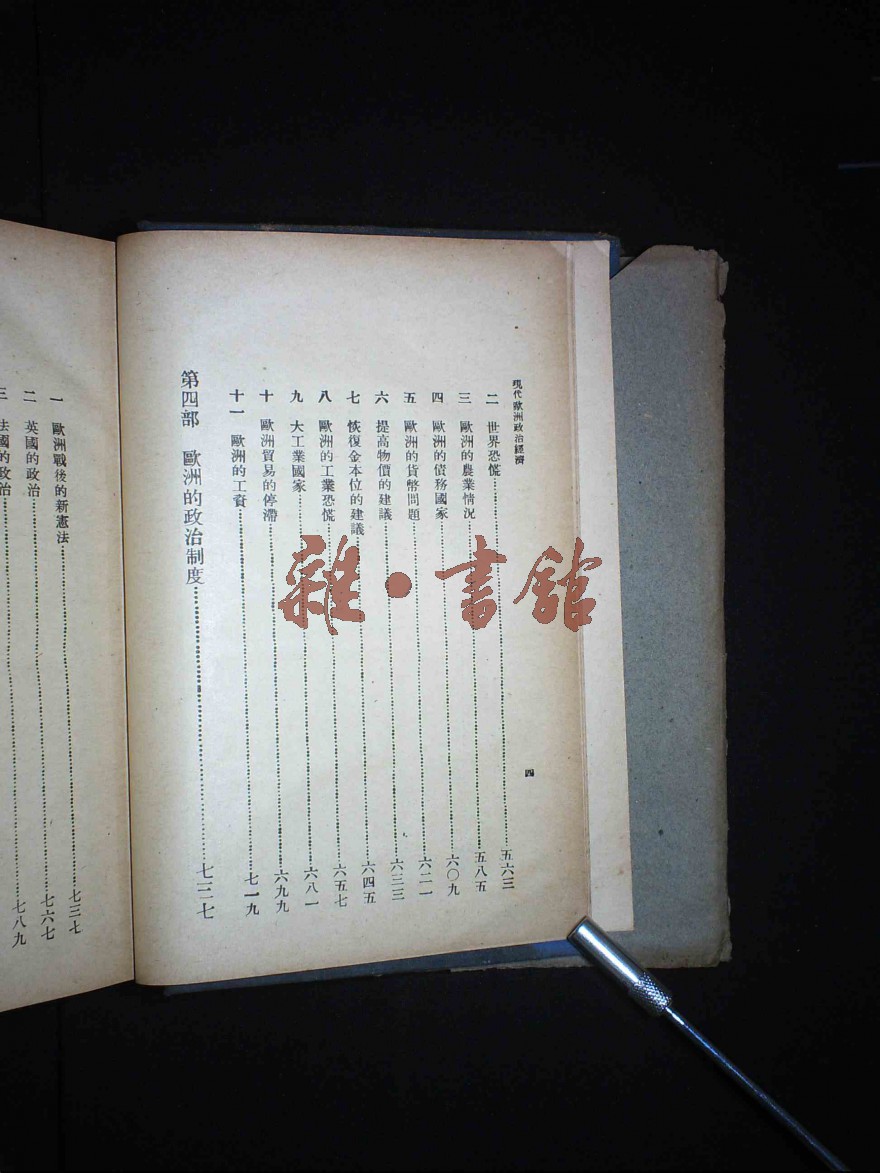 現代歐洲政治經濟
二 世界恐慌……五六三
三 歐洲的農業情況……五八五
四 歐洲的債務國家……六〇九
五 歐洲的貨幣問題……六二一
六 提高物價的建議……六三三
七 恢復金本位的建議……六四五
八 歐洲的工業恐慌……六五七
九 大工業國家……六八一
十 歐洲貿易的停滯……六九九
十一 歐洲的工資……七一九
第四部 歐洲的政治制度……七三七
四
一 歐洲戰後的新憲法……七三七
二 英國的政治……七六七
三 法國的政治……七八九
雜·書館